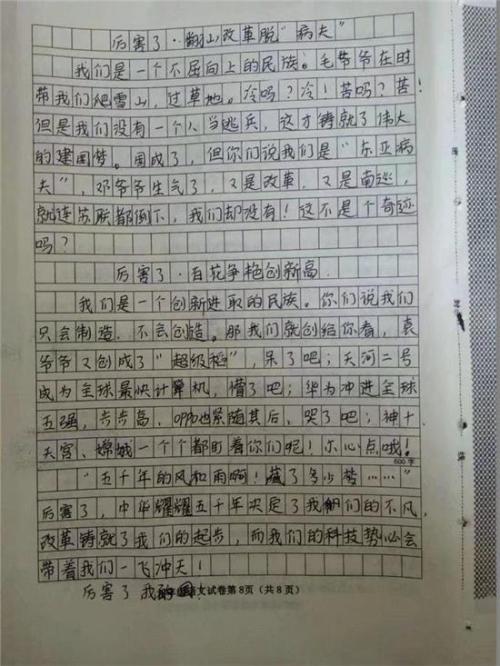 厉害了·翻山改革脱“病夫”
我们是一个不屈向上的民族。毛爷爷在时
带我们爬雪山，过草地。冷吗？冷！苦吗？苦
但是我们没有一个人当逃兵，这才铸就了伟大
的建国梦。国成了，但你们说我们是“东亚病
夫”，邓爷爷生气了，又是改革，又是南巡，
就连苏联都倒下，我们却没有！这不是个奇迹
吗？
厉害了·百花争艳创新高
我们是一个创新进取的民族。你们说我们
只会制造，不会创造。那我们就创给你看，袁
爷爷又创成了“超级稻”，呆了吧；天河二号
成为全球最快计算机，懵了吧；华为冲进全球
五强，步步高、OPPO也紧随其后，哭了吧；神十
天宫、嫦娥一个个都盯着你们呢！小心点哦！
600字
“五千年的风和雨啊！藏了多少梦……”
厉害了，中华耀耀五千年决定了我们的不凡
改革铸就了我们的起步，而我们的科技势必会
带着我们一飞冲天！
厉害了 我的国！
语文试卷第8页（共8页）